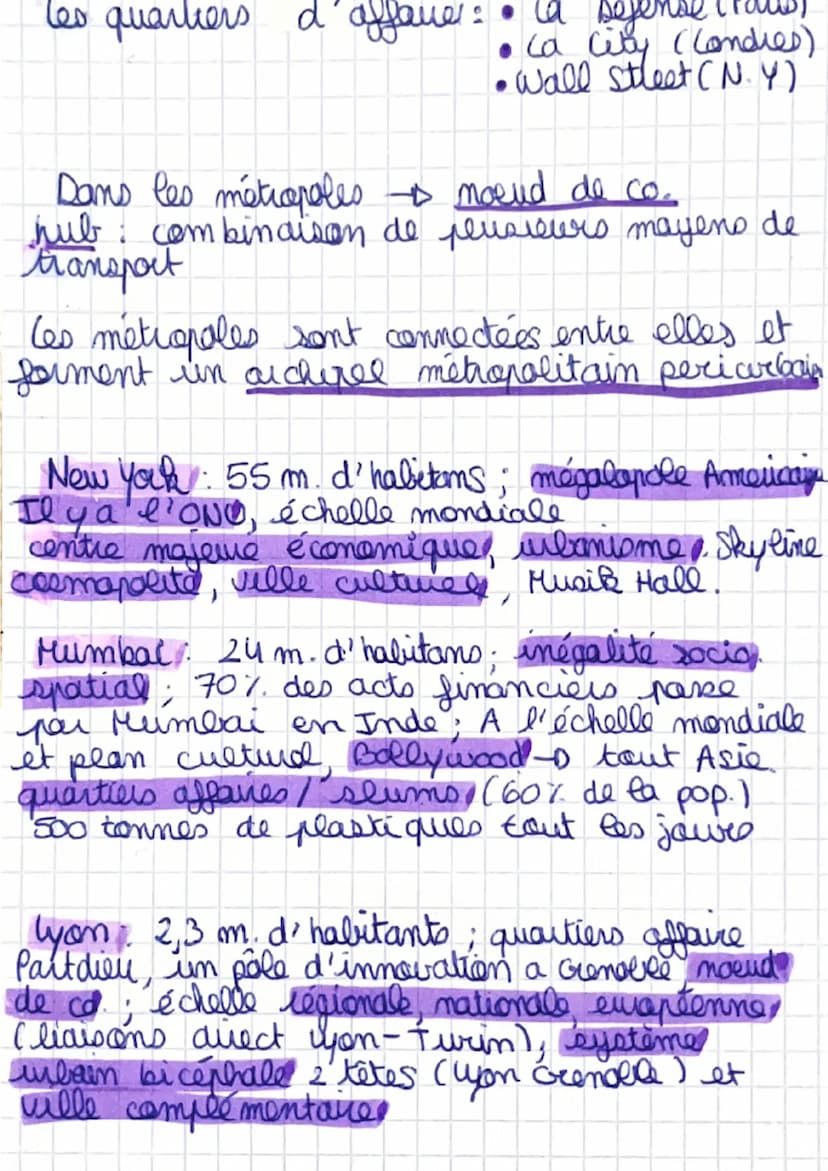 les quartiers d'affaire: • La Défense (Paris)
• La City (Londres)
• Wall Street (N.Y)
Dans les métropoles → noeud de co.
hub : combinaison de plusieurs moyens de
transport
Les métropoles sont connectées entre elles et
forment un archipel métropolitain periurbain
New York : 55 m. d'habitans ; mégalopole Americain
Il y a l'ONU, échelle mondiale
centre majeur économique, urbanisme, Skyline
cosmopolite, ville culturel, Musik Hall.
Mumbai : 24 m. d'habitans ; inégalité socio
spatial ; 70% des acts financiers passe
par Mumbai en Inde ; A l'échelle mondiale
et plan culturel, Bollywood → tout Asie
quartiers affaires / slums, (60% de la pop.)
500 tonnes de plastiques tout les jours
Lyon : 2,3 m. d'habitants ; quartiers affaire
Partdieu, un pôle d'innovation a Grenoble noeud
de co. ; échelle régionale, nationale, européenne,
(liaisons direct Lyon-Turin), système
urbain bicéphale 2 têtes (Lyon Grenoble) et
ville complémentaire